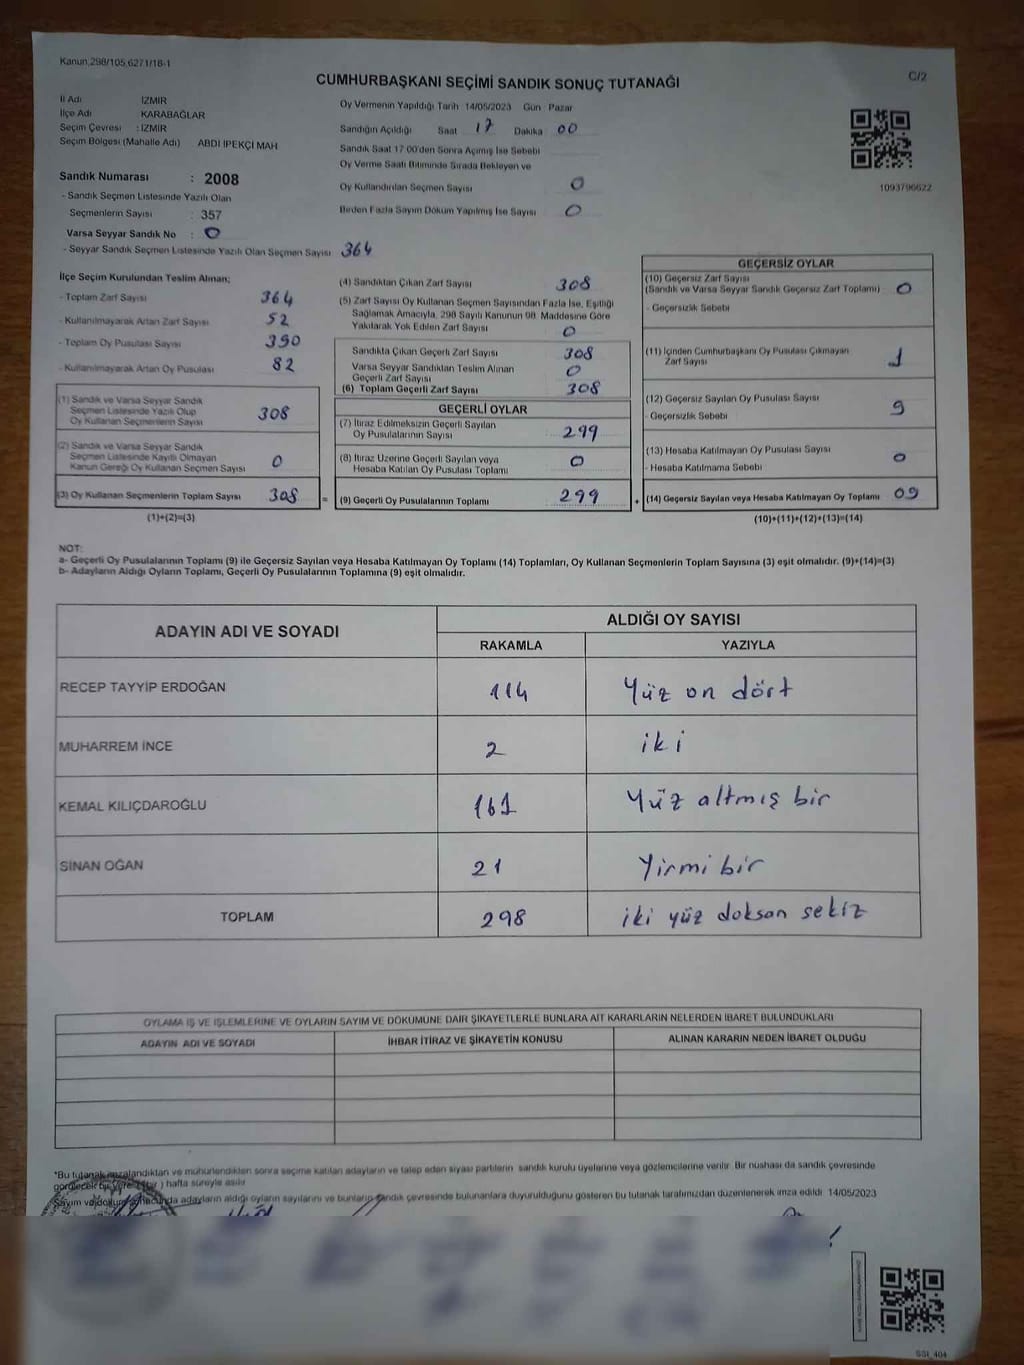 Kanun,298/105,6271/18-1
C/2
CUMHURBAŞKANI SEÇİMİ SANDIK SONUÇ TUTANAĞI
İl Adı İZMİR
İlçe Adı KARABAĞLAR
Seçim Çevresi : İZMİR
Seçim Bölgesi (Mahalle Adı) ABDİ İPEKÇİ MAH
Sandık Numarası : 2008
- Sandık Seçmen Listesinde Yazılı Olan
Seçmenlerin Sayısı : 357
Varsa Seyyar Sandık No : 0
- Seyyar Sandık Seçmen Listesinde Yazılı Olan Seçmen Sayısı 364
Oy Vermenin Yapıldığı Tarih 14/05/2023 Gün Pazar
Sandığın Açıldığı Saat 17 Dakika 00
Sandık Saat 17 00'den Sonra Açımış İse Sebebi
Oy Verme Saati Bitiminde Sırada Bekleyen ve
Oy Kullandırılan Seçmen Sayısı 0
Birden Fazla Sayım Döküm Yapılmış İse Sayısı 0
1093796622
İlçe Seçim Kurulundan Teslim Alınan;
- Toplam Zarf Sayısı 364
- Kullanılmayarak Artan Zarf Sayısı 52
- Toplam Oy Pusulası Sayısı 390
- Kullanılmayarak Artan Oy Pusulası 82
(1) Sandık ve Varsa Seyyar Sandık
Seçmen Listesinde Yazılı Olup
Oy Kullanan Seçmenlerin Sayısı 308
(2) Sandık ve Varsa Seyyar Sandık
Seçmen Listesinde Kayıtlı Olmayan
Kanun Gereği Oy Kullanan Seçmen Sayısı 0
(3) Oy Kullanan Seçmenlerin Toplam Sayısı 308 =
(1)+(2)=(3)
(4) Sandıktan Çıkan Zarf Sayısı 308
(5) Zarf Sayısı Oy Kullanan Seçmen Sayısından Fazla İse, Eşitliği
Sağlamak Amacıyla, 298 Sayılı Kanunun 98. Maddesine Göre
Yakılarak Yok Edilen Zarf Sayısı 0
Sandıkta Çıkan Geçerli Zarf Sayısı 308
Varsa Seyyar Sandıktan Teslim Alınan
Geçerli Zarf Sayısı 0
(6) Toplam Geçerli Zarf Sayısı 308
GEÇERLİ OYLAR
(7) İtiraz Edilmeksizin Geçerli Sayılan
Oy Pusulalarının Sayısı 299
(8) İtiraz Üzerine Geçerli Sayılan veya
Hesaba Katılan Oy Pusulası Toplamı 0
(9) Geçerli Oy Pusulalarının Toplamı 299 +
GEÇERSİZ OYLAR
(10) Geçersiz Zarf Sayısı
(Sandık ve Varsa Seyyar Sandık Geçersiz Zarf Toplamı) 0
- Geçersizlik Sebebi
(11) İçinden Cumhurbaşkanı Oy Pusulası Çıkmayan
Zarf Sayısı 1
(12) Geçersiz Sayılan Oy Pusulası Sayısı
- Geçersizlik Sebebi 9
(13) Hesaba Katılmayan Oy Pusulası Sayısı
- Hesaba Katılmama Sebebi 0
(14) Geçersiz Sayılan veya Hesaba Katılmayan Oy Toplamı 09
(10)+(11)+(12)+(13)=(14)
NOT:
a- Geçerli Oy Pusulalarının Toplamı (9) ile Geçersiz Sayılan veya Hesaba Katılmayan Oy Toplamı (14) Toplamları, Oy Kullanan Seçmenlerin Toplam Sayısına (3) eşit olmalıdır. (9)+(14)=(3)
b- Adayların Aldığı Oyların Toplamı, Geçerli Oy Pusulalarının Toplamına (9) eşit olmalıdır.
ADAYIN ADI VE SOYADI ALDIĞI OY SAYISI
RAKAMLA YAZIYLA
RECEP TAYYİP ERDOĞAN 114 Yüz on dört
MUHARREM İNCE 2 iki
KEMAL KILIÇDAROĞLU 161 Yüz altmış bir
SİNAN OĞAN 21 Yirmi bir
TOPLAM 298 iki yüz doksan sekiz
OYLAMA İŞ VE İŞLEMLERİNE VE OYLARIN SAYIM VE DÖKÜMÜNE DAİR ŞİKAYETLERLE BUNLARA AİT KARARLARIN NELERDEN İBARET BULUNDUKLARI
ADAYIN ADI VE SOYADI İHBAR İTİRAZ VE ŞİKAYETİN KONUSU ALINAN KARARIN NEDEN İBARET OLDUĞU
*Bu tutanak imzalandıktan ve mühürlendikten sonra seçime katılan adayların ve talep eden siyasi partilerin sandık kurulu üyelerine veya gözlemcilerine verilir. Bir nüshası da sandık çevresinde
görülecek bir yere ) hafta süreyle asılır
Sayım ve döküm adayların aldığı oyların sayılarını ve bunların sandık çevresinde bulunanlara duyurulduğunu gösteren bu tutanak tarafımızdan düzenlenerek imza edildi 14/05/2023
SSI_404